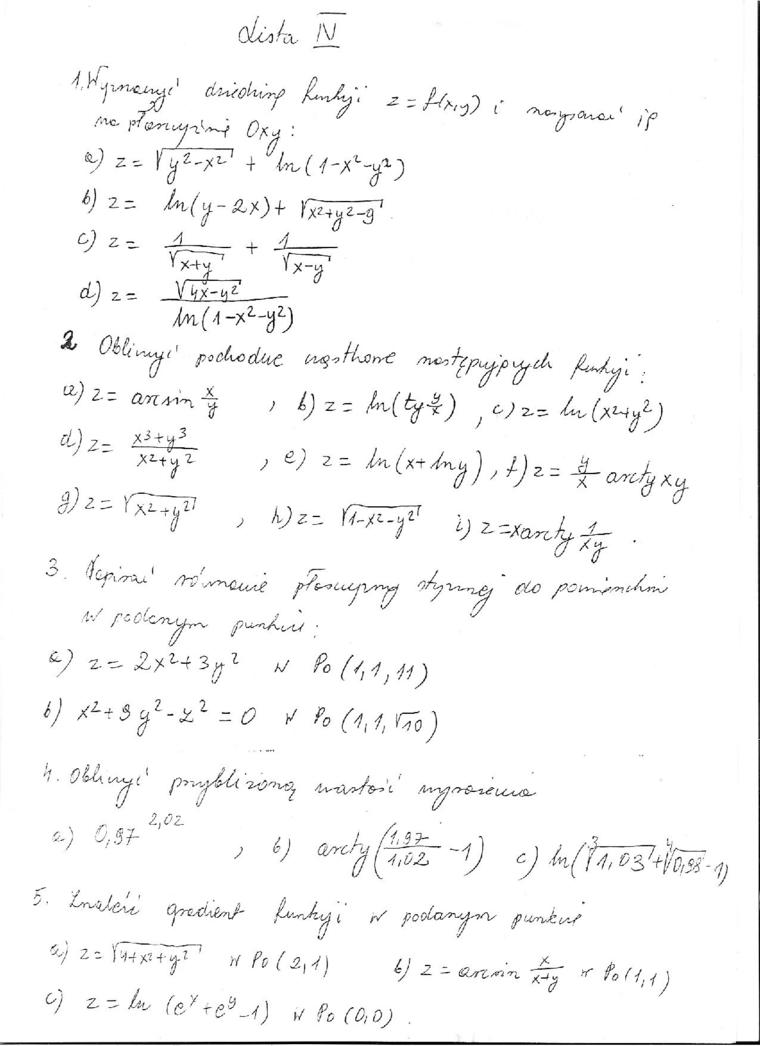 Lista IV
1. Wyznaczyć dziedzinę funkcji z = f(x,y) i narysować ją
na płaszczyźnie Oxy:
a) z = √(y²-x²) + ln(1-x²-y²)
b) z = ln(y-2x) + √(x²+y²-9)
c) z = 1/√(x+y) + 1/√(x-y)
d) z = √(4x-y²) / ln(1-x²-y²)
2 Obliczyć pochodne cząstkowe następujących funkcji:
a) z = arcsin x/y , b) z = ln(tg y/x) , c) z = ln(x²+y²)
d) z = (x³+y³)/(x²+y²) , e) z = ln(x+lny) , f) z = y/x arctg xy
g) z = √(x²+y²) , h) z = √(1-x²-y²) i) z = x arctg 1/xy .
3. Napisać równanie płaszczyzny stycznej do powierzchni
w podanym punkcie:
a) z = 2x²+3y² w Po(1,1,11)
b) x²+9y²-z² = 0 w Po(1,1,√10)
4. Obliczyć przybliżoną wartość wyrażenia
a) 0,97^2,02 , b) arctg(1,97/1,02 - 1) c) ln(∛1,03 + ∜0,98 - 1)
5. Znaleźć gradient funkcji w podanym punkcie
a) z = √(4+x²+y²) w Po(2,1) b) z = arcsin x/(x+y) w Po(1,1)
c) z = ln (eˣ+eʸ-1) w Po(0,0) .